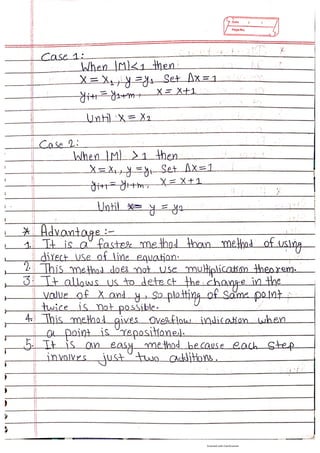 Case 1:
When |M|<1 then
X = X1, y = y1 Set Δx=1
yi+1 = y1+m, X = X+1
Until X = X2
Case 2:
When |M| > 1 then
X = X1, y = y1, Set Δx=1
yi+1 = y1+m, X = X+1
Until y = y2
* Advantage :-
1. It is a faster method than method of using
direct use of line equation.
2. This method does not use multiplication theorem.
3. It allows us to detect the change in the
value of X and y, so plotting of same point
twice is not possible.
4. This method gives overflow indication when
a point is repositioned.
5. It is an easy method because each step
involves just two additions.